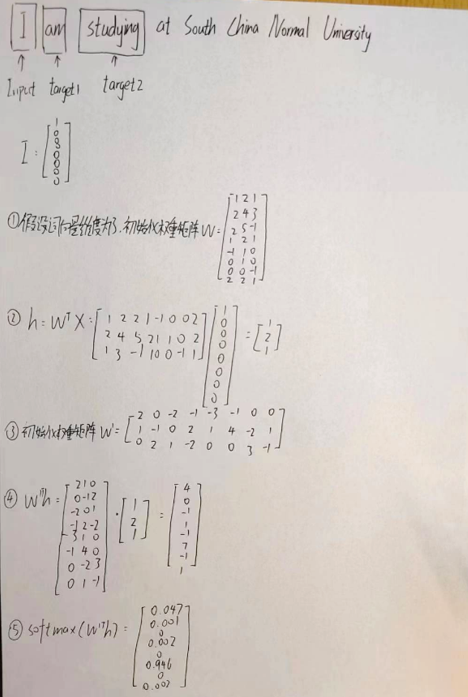 I am studying at South China Normal University
Input target1 target2
I = [1 0 0 0 0 0 0 0]
① 假设词向量维度为3, 初始化权重矩阵 W =
1 2 1
2 4 3
2 5 -1
1 2 1
-1 1 0
0 1 0
0 0 -1
2 2 1
② h = Wᵀ X =
1 2 2 1 -1 0 0 2
2 4 5 2 1 1 0 2
1 3 -1 1 0 0 -1 1
[1 0 0 0 0 0 0 0] = [1 2 1]
③ 初始化权重矩阵 W' =
2 0 -2 -1 -3 -1 0 0
1 -1 0 2 1 4 -2 1
0 2 1 -2 0 0 3 -1
④ W'ᵀh =
2 1 0
0 -1 2
-2 0 1
-1 2 -2
-3 1 0
-1 4 0
0 -2 3
0 1 -1
· [1 2 1] = [4 0 -1 1 -1 7 -1 1]
⑤ softmax(W'ᵀh) =
0.047
0.001
0
0.002
0
0.946
0
0.002